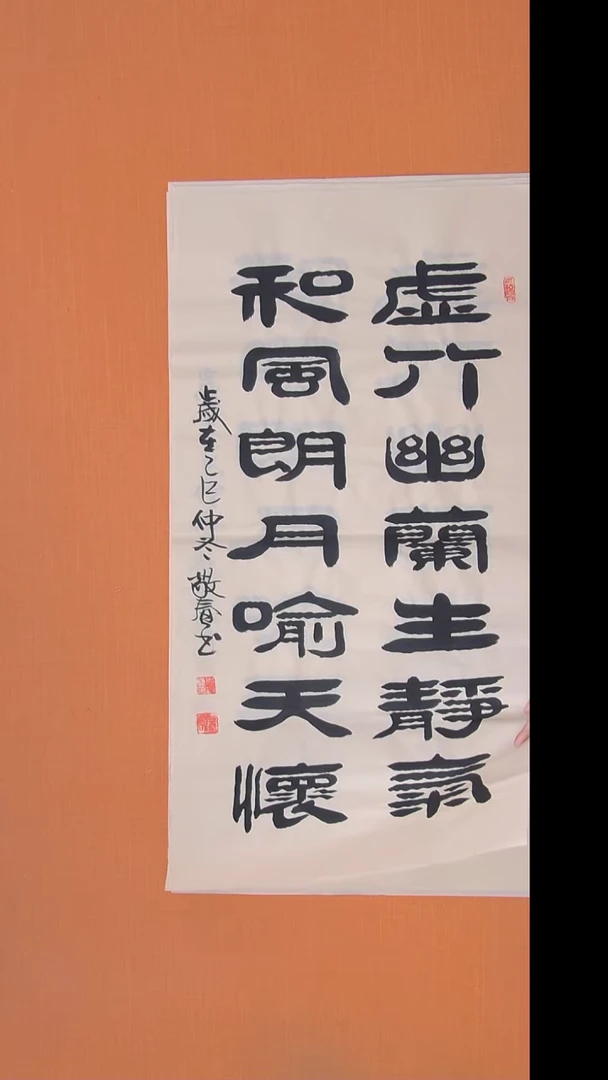 虚竹幽蘭生靜氣
和風朗月喻天懷
歲在乙巳仲冬敬书